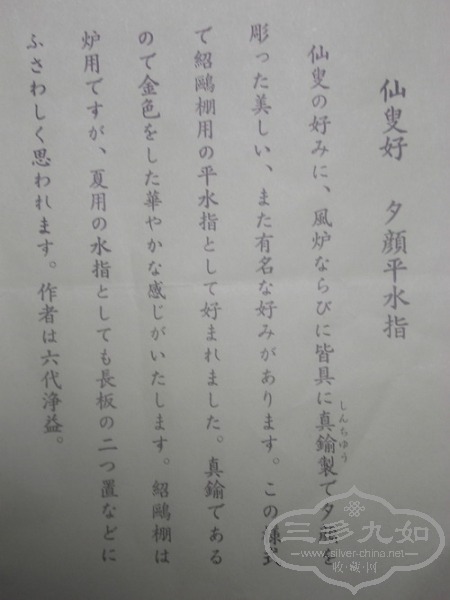 仙叟好　夕顔平水指
仙叟の好みに、風炉ならびに皆具に真鍮製で夕顔を
しんちゆう
彫った美しい、また有名な好みがあります。この様式
で紹鷗棚用の平水指として好まれました。真鍮である
ので金色をした華やかな感じがいたします。紹鷗棚は
炉用ですが、夏用の水指としても長板の二つ置などに
ふさわしく思われます。作者は六代浄益。
三多九如
www.silver-china.net
收·藏·国